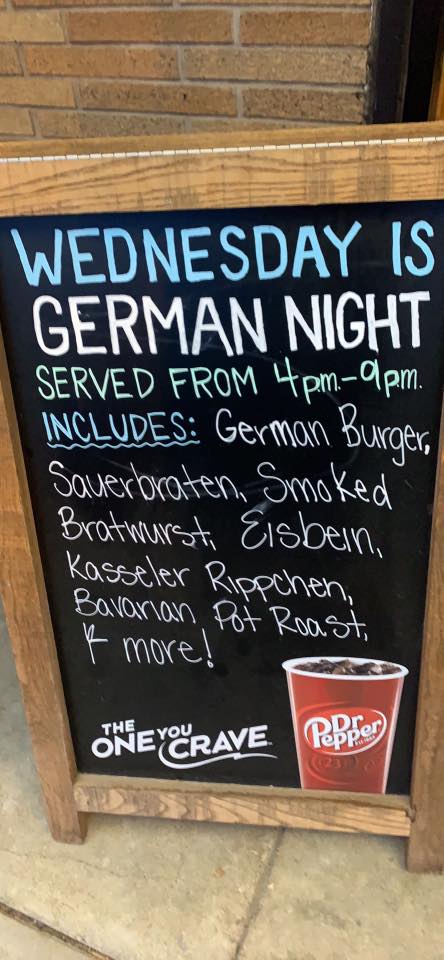 WEDNESDAY IS
GERMAN NIGHT
SERVED FROM 4p.m.-9p.m.
INCLUDES: German Burger,
Sauerbraten, Smoked
Bratwurst, Eisbein,
Kasseler Rippchen,
Bavarian Pot Roast,
& more!
THE
ONE YOU
CRAVE
Dr
Pepper
23